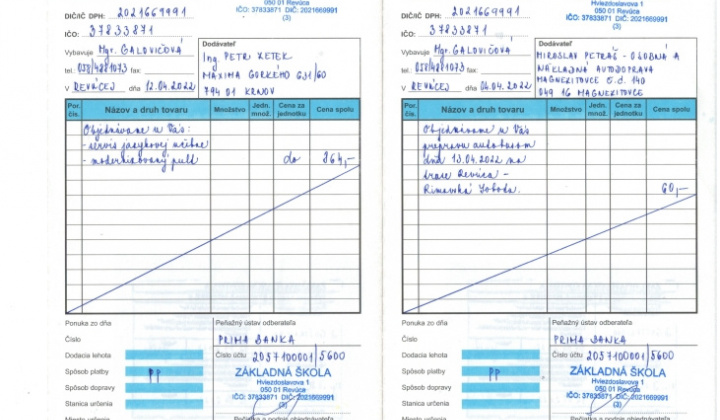 050 01 Revúca
IČO: 37833871 DIČ: 2021669991
(3)
DIČ/IČ DPH: 2021669991
IČO: 37833871
Vybavuje Mgr. GALOVIČOVÁ
tel.: 058/4881073 fax:
V REVÚCEJ dňa 12.04.2022
Dodávateľ
Ing. PETR XETEK
MAXIMA GORKÉHO 631/60
794 01 KRNOV
Por. čís. Názov a druh tovaru Množstvo Jedn. množ. Cena za jednotku Cena spolu
Objednávame u Vás:
- servis jazykovej učebne
- modernizovaný pult do 864,-
Ponuka zo dňa
Číslo
Dodacia lehota
Spôsob platby PP
Spôsob dopravy
Stanica určenia
Miesto určenia
Peňažný ústav odberateľa
PRIMA BANKA
Číslo účtu 2057100001/5600
ZÁKLADNÁ ŠKOLA
Hviezdoslavova 1
050 01 Revúca
IČO: 37833871 DIČ: 2021669991
(3)
Pečiatka a podpis objednávateľa
050 01 Revúca
IČO: 37833871 DIČ: 2021669991
(3)
DIČ/IČ DPH: 2021669991
IČO: 37833871
Vybavuje Mgr. GALOVIČOVÁ
tel.: 058/4881073 fax:
V REVÚCEJ dňa 06.04.2022
Dodávateľ
MIROSLAV PETRÁŠ - OSOBNÁ A
NÁKLADNÁ AUTODOPRAVA
MAGNEZITOVCE č.d. 140
049 16 MAGNEZITOVCE
Por. čís. Názov a druh tovaru Množstvo Jedn. množ. Cena za jednotku Cena spolu
Objednávame u Vás
prepravu autobusom
dňa 13.04.2022 na
trase Revúca -
Rimavská Sobota. 60,-
Ponuka zo dňa
Číslo
Dodacia lehota
Spôsob platby PP
Spôsob dopravy
Stanica určenia
Miesto určenia
Peňažný ústav odberateľa
PRIMA BANKA
Číslo účtu 2057100001/5600
ZÁKLADNÁ ŠKOLA
Hviezdoslavova 1
050 01 Revúca
IČO: 37833871 DIČ: 2021669991
(3)
Pečiatka a podpis objednávateľa